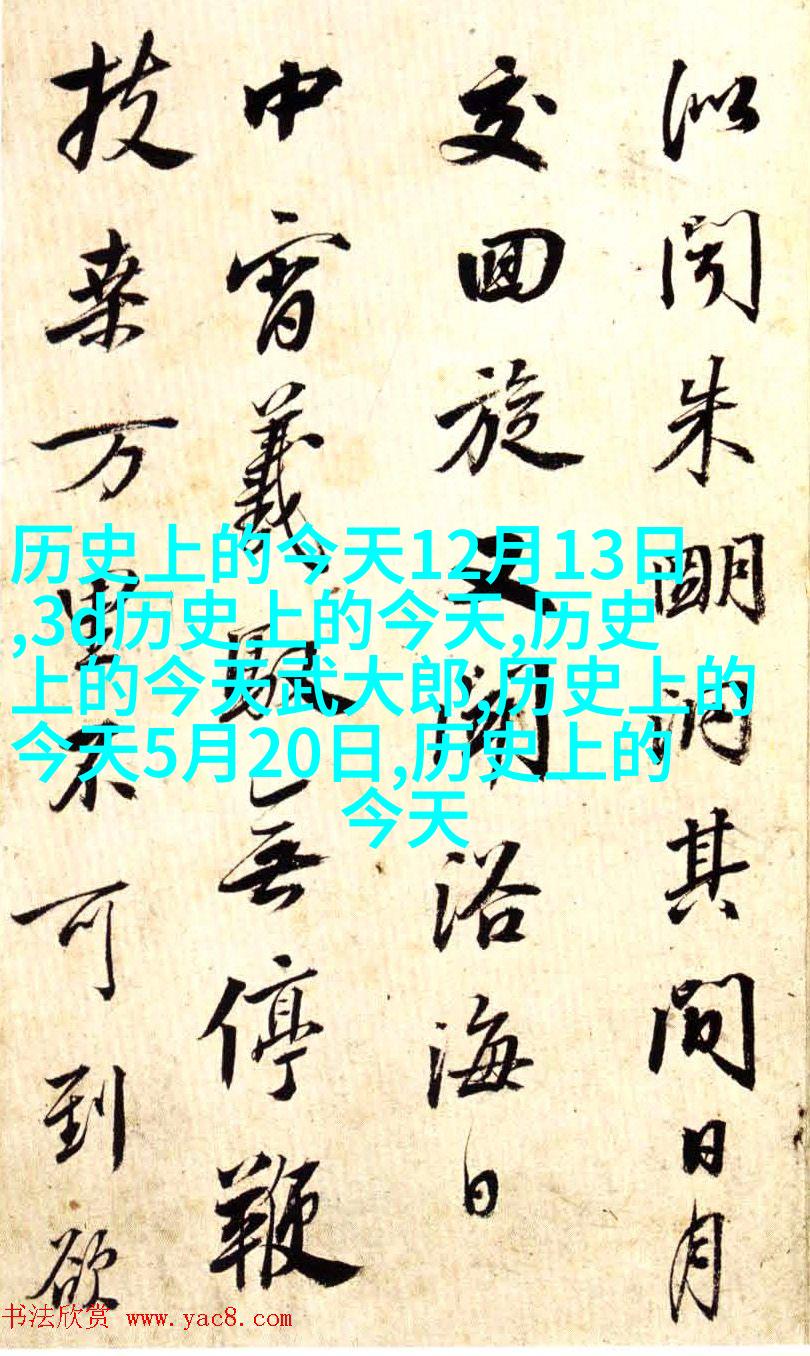 似開朱朙洞其間日月
交囬旋又聞浴海日
中宵義馭無停鞭
扶桒万里不可到欲
历史上的今天12月13日
,3d历史上的今天,历史
上的今天武大郎,历史上的
今天5月20日,历史上的
今天
书法欣赏 www.yac8.com